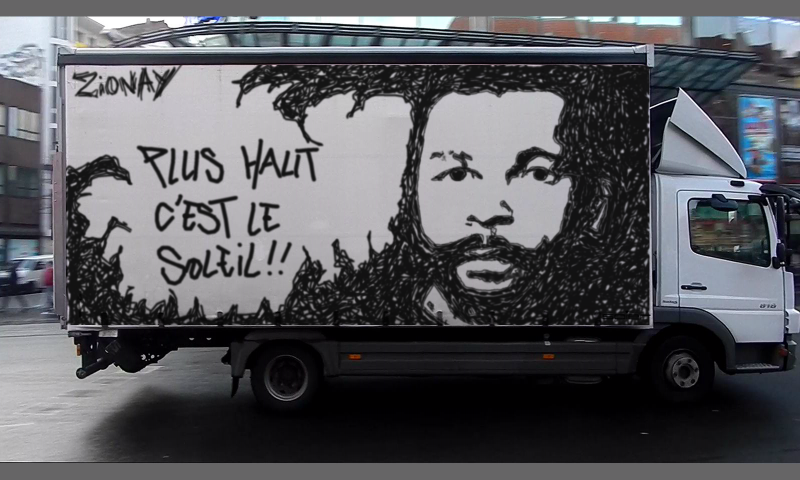 ZiONAY
PLUS HAUT
C'EST LE
SOLEiL!!